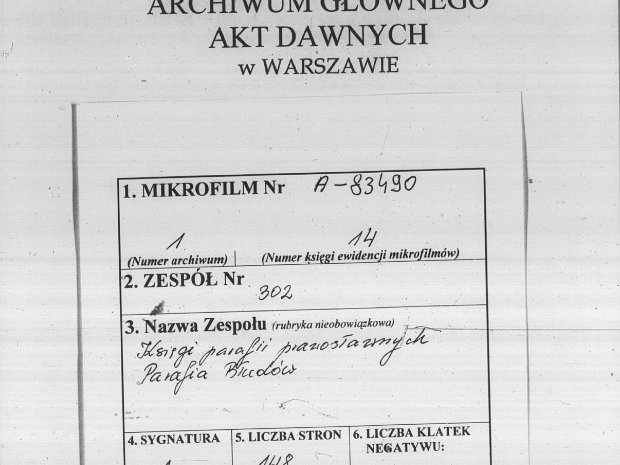 ARCHIWUM GŁÓWNEGO
AKT DAWNYCH
w WARSZAWIE
1. MIKROFILM Nr A-83490
1 14
(Numer archiwum) (Numer księgi ewidencji mikrofilmów)
2. ZESPÓŁ Nr
302
3. Nazwa Zespołu (rubryka nieobowiązkowa)
Księgi parafii prawosławnych
Parafia Błudów
4. SYGNATURA 5. LICZBA STRON 6. LICZBA KLATEK
NEGATYWU:
1 148